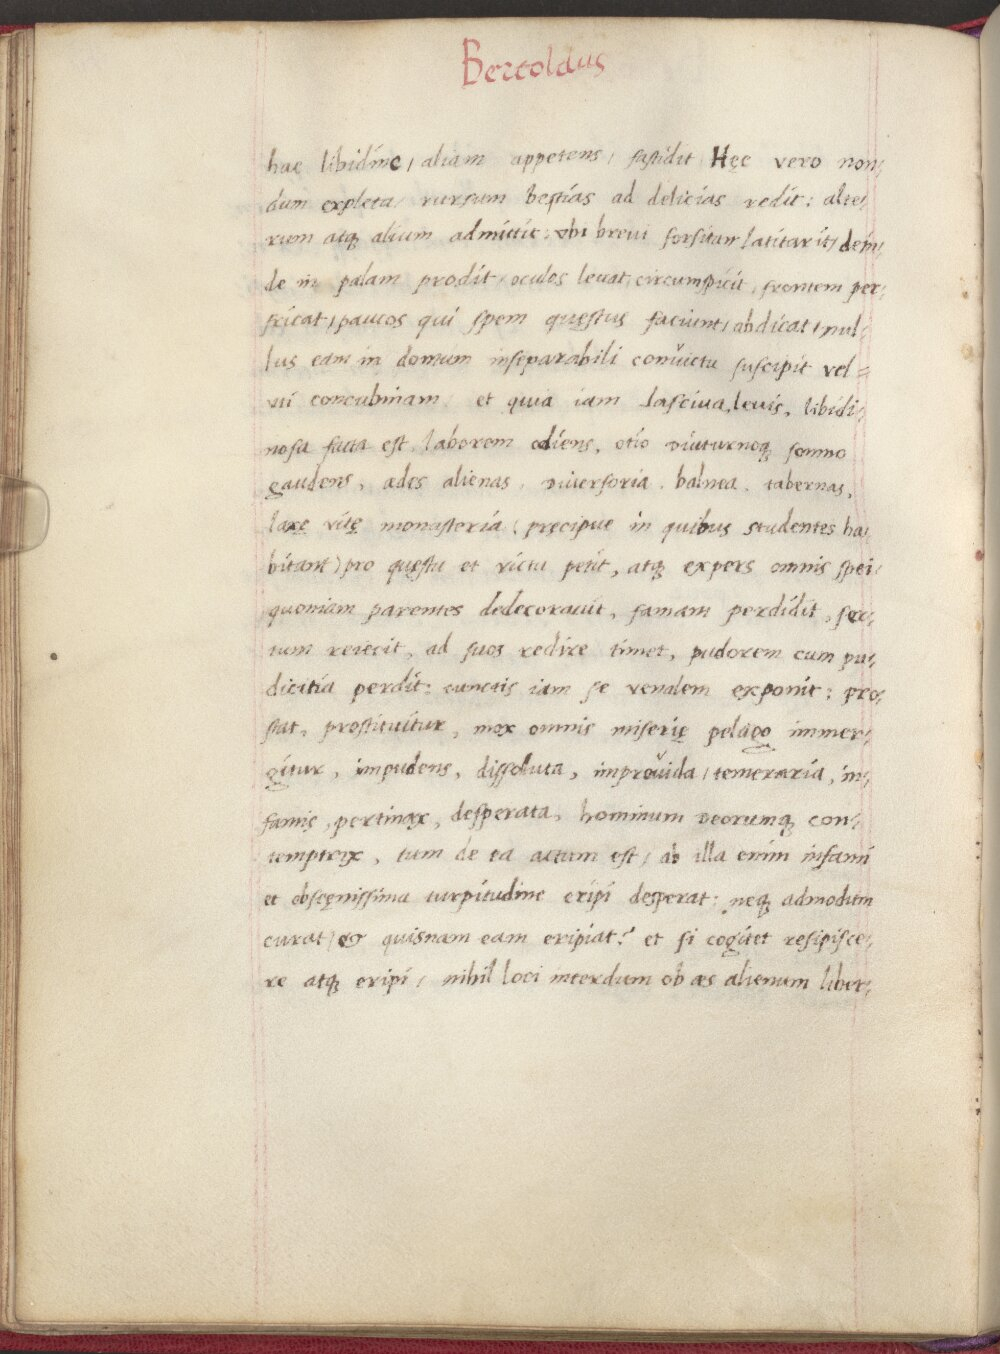 Bertoldus
hac libidine / aliam appetens / fastidit Hęc vero non/
dum expleta / rursum bestias ad delicias redit : alte/
rum atq; alium admittit : vbi brevi forsitan latitarit / dein/
de in palam prodit / oculos leuat / circumspicit , frontem per/
fricat / paucos qui spem quęstus faciunt / abdicat / nul/
lus eam in domum inseparabili convictu suscipit vel=
uti concubinam / et quia iam lasciua, leuis, libidi/
nosa facta est , laborem odiens , otio diuturnoq; somno
gaudens , ædes alienas . diuersoria . balnea . tabernas ,
laxę vitę monasteria ( pręcipue in quibus studentes ha/
bitant ) pro quęstu et victu petit , atq; expers omnis spei/
quoniam parentes dedecorauit , famam perdidit , ser/
tum reiecit , ad suos redire timet , pudorem cum pu/
dicitia perdit : cunctis iam se venalem exponit : pro/
stat , prostituitur , mox omnis miserię pelago immer/
gitur , impudens , dissoluta , improvida / temeraria , in/
famis , pertinax , desperata , hominum deorumq; con/
temptrix , tum de ea actum est / ab illa enim infami
et obscęnissima turpitudine eripi desperat : neq; admodum
curat / quisnam eam eripiat ? et si cogitet resipisce/
re atq; eripi / nihil loci interdum ob æs alienum liber/